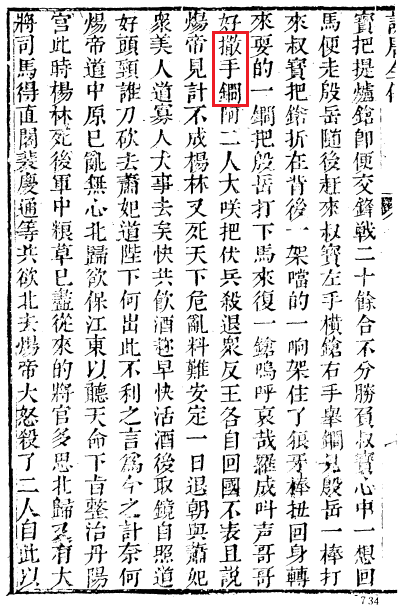 寶把提爐鎗卽便交鋒戰二十餘合不分勝負叔寶心中一想回
馬便走殷岳隨後赶來叔寶左手橫鎗右手舉鐧見殷岳一棒打
來叔寶把鎗折在背後一架噹的一响架住了狼牙棒扭回身轉
來耍的一鐧把殷岳打下馬來復一鎗嗚呼哀哉羅成叫声哥哥
好撒手鐧阿二人大咲把伏兵殺退衆反王各自回國不表且說
煬帝見計不成楊林又死天下危亂料難安定一日退朝與蕭妃
衆美人道寡人大事去矣快共飮酒趂早快活酒後取鏡自照道
好頭頸誰刀砍去蕭妃道陛下何出此不利之言爲今之計奈何
煬帝道中原已亂無心北歸欲保江東以聽天命下旨整治丹陽
宮此時楊林死後軍中粮草已盡從來的將官多思北歸又有大
將司馬得直閣裴慶通等共欲北去煬帝大怒殺了二人自此以
734